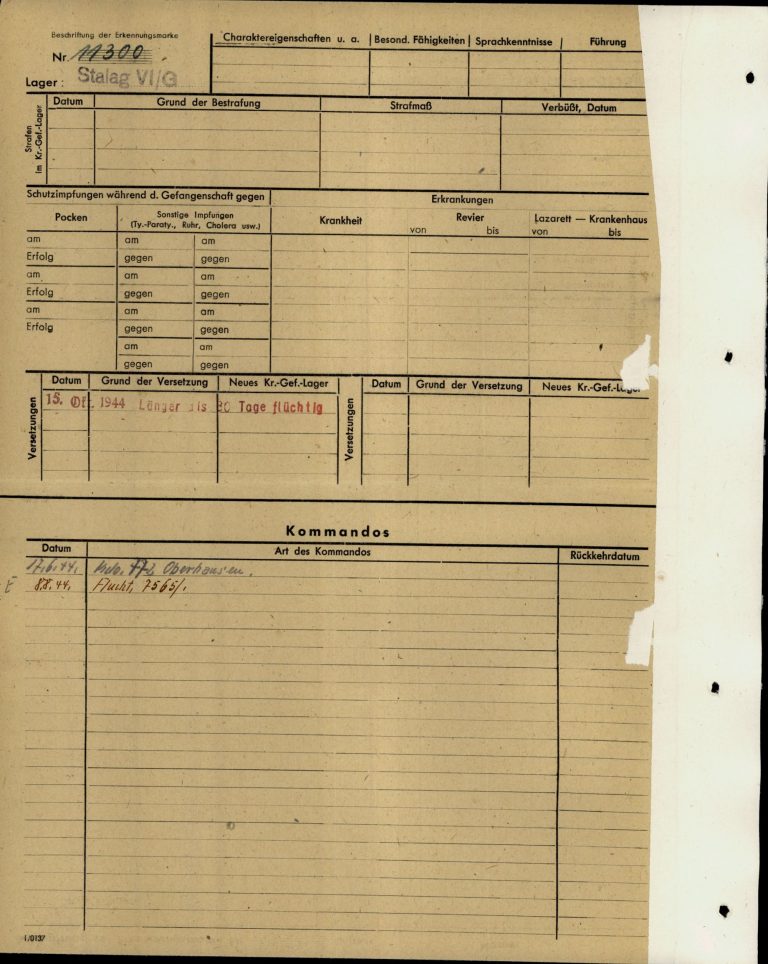 Beschriftung der Erkennungsmarke
Nr. 11300.
Lager: Stalag VI/G
Charaktereigenschaften u. a. Besond. Fähigkeiten Sprachkenntnisse Führung
Strafen im Kr.-Gef.-Lager
Datum Grund der Bestrafung Strafmaß Verbüßt, Datum
Schutzimpfungen während d. Gefangenschaft gegen
Erkrankungen
Pocken
Sonstige Impfungen
(Ty.-Paraty., Ruhr, Cholera usw.)
Krankheit
Revier
von bis
Lazarett — Krankenhaus
von bis
am am am
Erfolg gegen gegen
am am am
Erfolg gegen gegen
am am am
Erfolg gegen gegen
am am
gegen gegen
Versetzungen
Datum Grund der Versetzung Neues Kr.-Gef.-Lager
15. Okt. 1944 Länger als 80 Tage flüchtig
Versetzungen
Datum Grund der Versetzung Neues Kr.-Gef.-Lager
Kommandos
Datum Art des Kommandos Rückkehrdatum
17.6.44. Oberhausen.
8.8.44. Flucht, 7565/.
I/0137